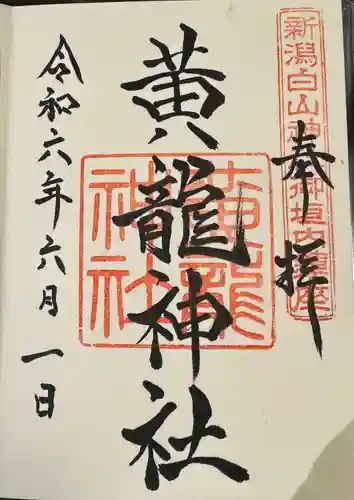 奉拝
新潟白山神社御垣内鎮座
黄龍神社
黄龍神社
令和六年六月一日